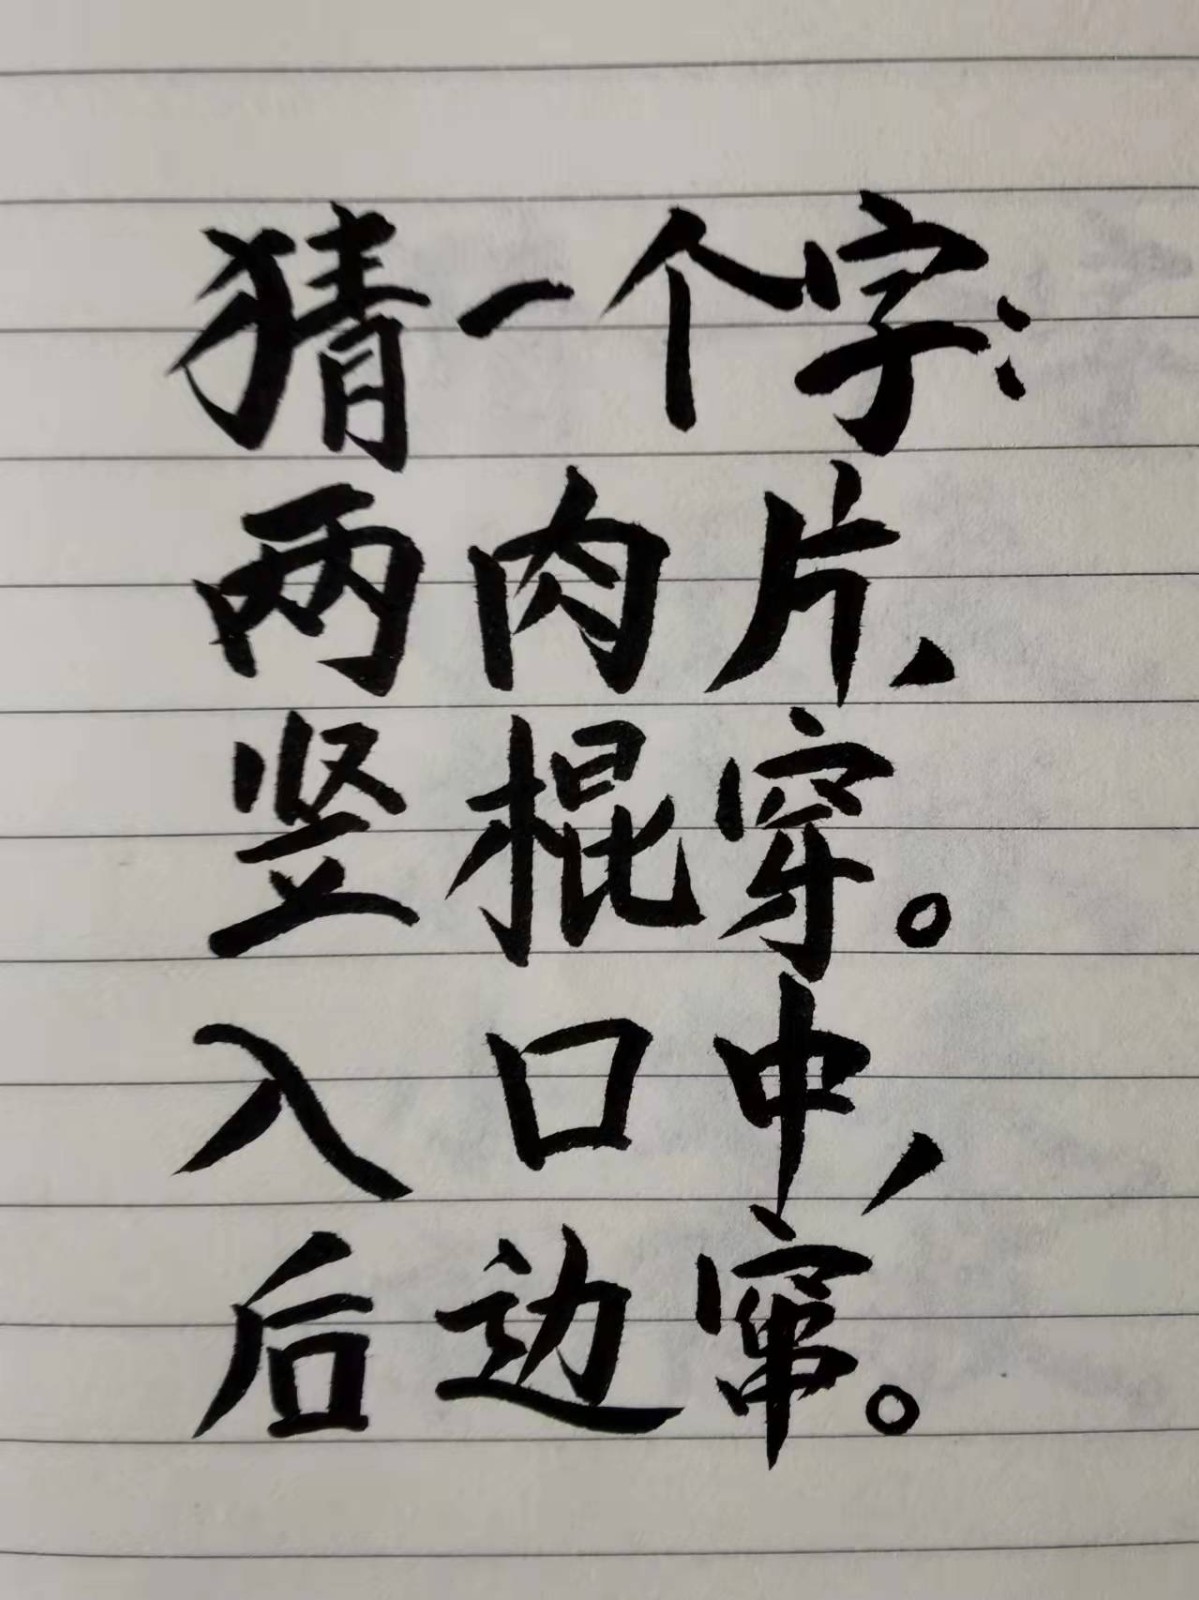 猜一个字：
两肉片，
竖棍穿。
入口中，
后边窜。